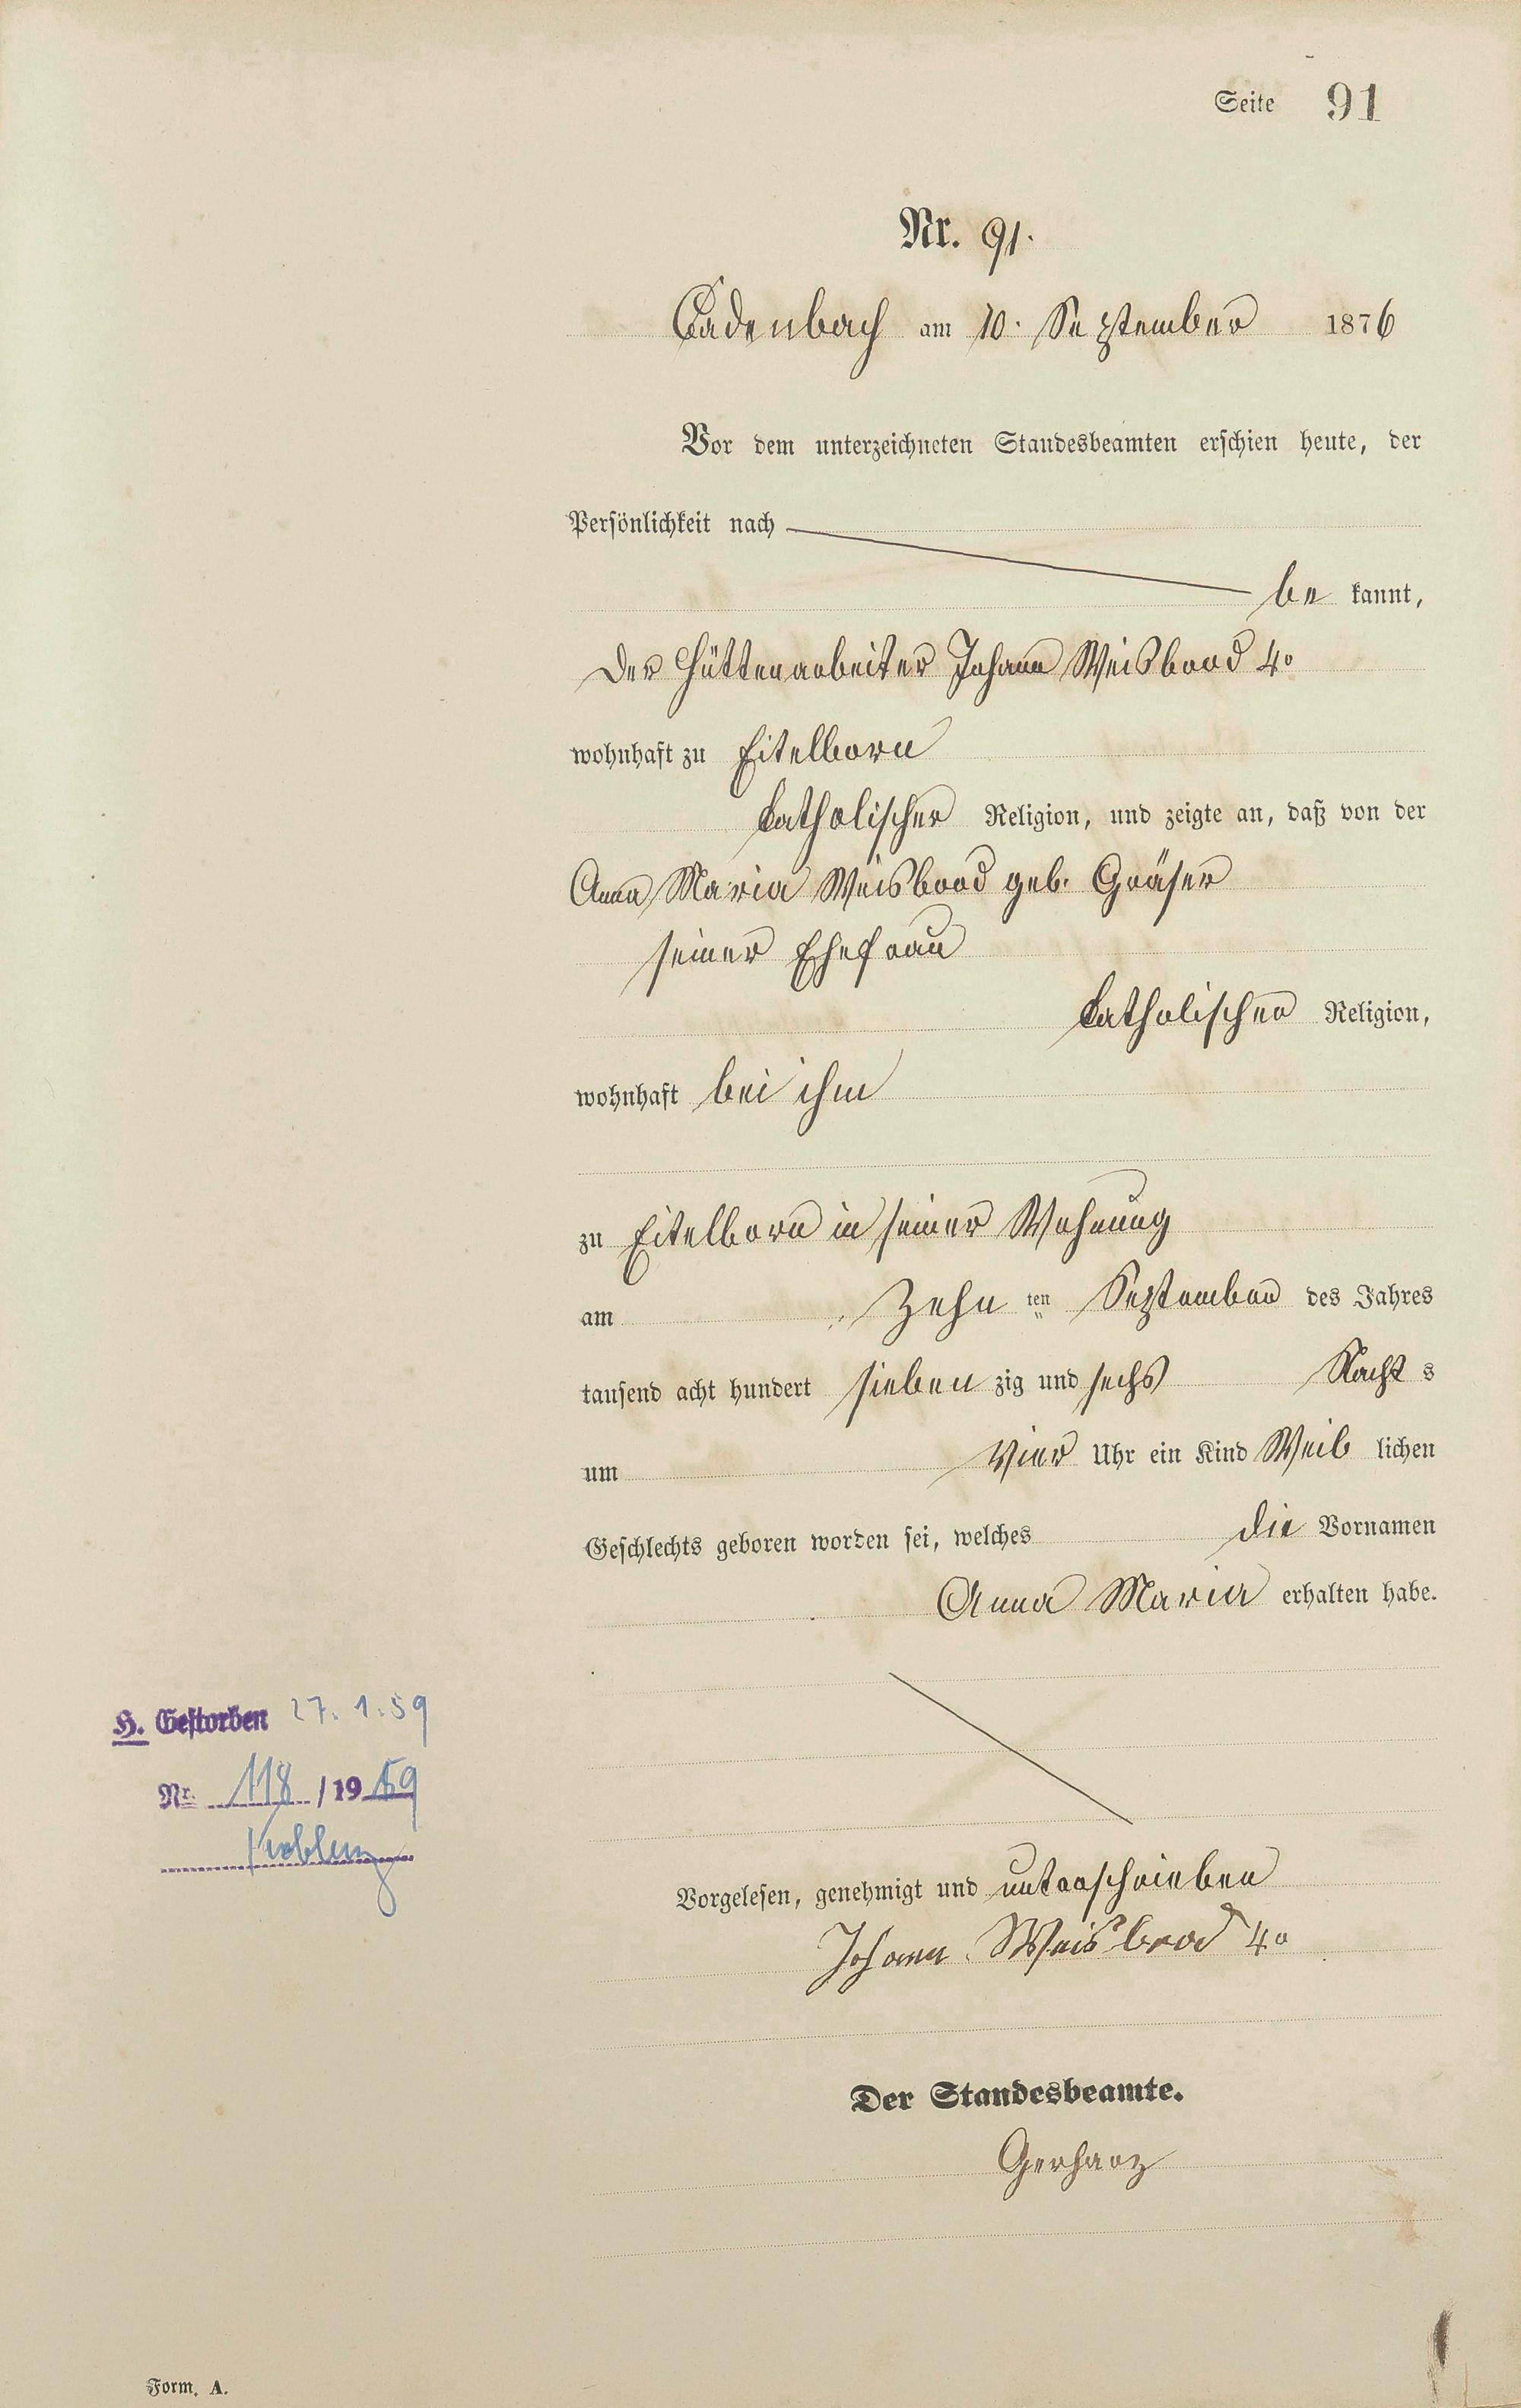 Seite 91
Nr. 91.
Cadenbach am 10. September 1876
Vor dem unterzeichneten Standesbeamten erschien heute, der
Persönlichkeit nach
be kannt,
der Hüttenarbeiter Johann Weisbrod 4o
wohnhaft zu Eitelborn
katholischer Religion, und zeigte an, daß von der
Anna Maria Weisbrod geb. Gräser
seiner Ehefrau
katholischer Religion,
wohnhaft bei ihm
zu Eitelborn in seiner Wohnung
am zehn ten September des Jahres
tausend acht hundert sieben zig und sechs Nacht s
um vier Uhr ein Kind Weib lichen
Geschlechts geboren worden sei, welches die Vornamen
Anna Maria erhalten habe.
H. Gestorben 27.1.59
Nr. 118 / 19 59
Koblenz
Vorgelesen, genehmigt und unterschrieben
Johann Weisbrod 4o
Der Standesbeamte.
Gerharz
Form. A.